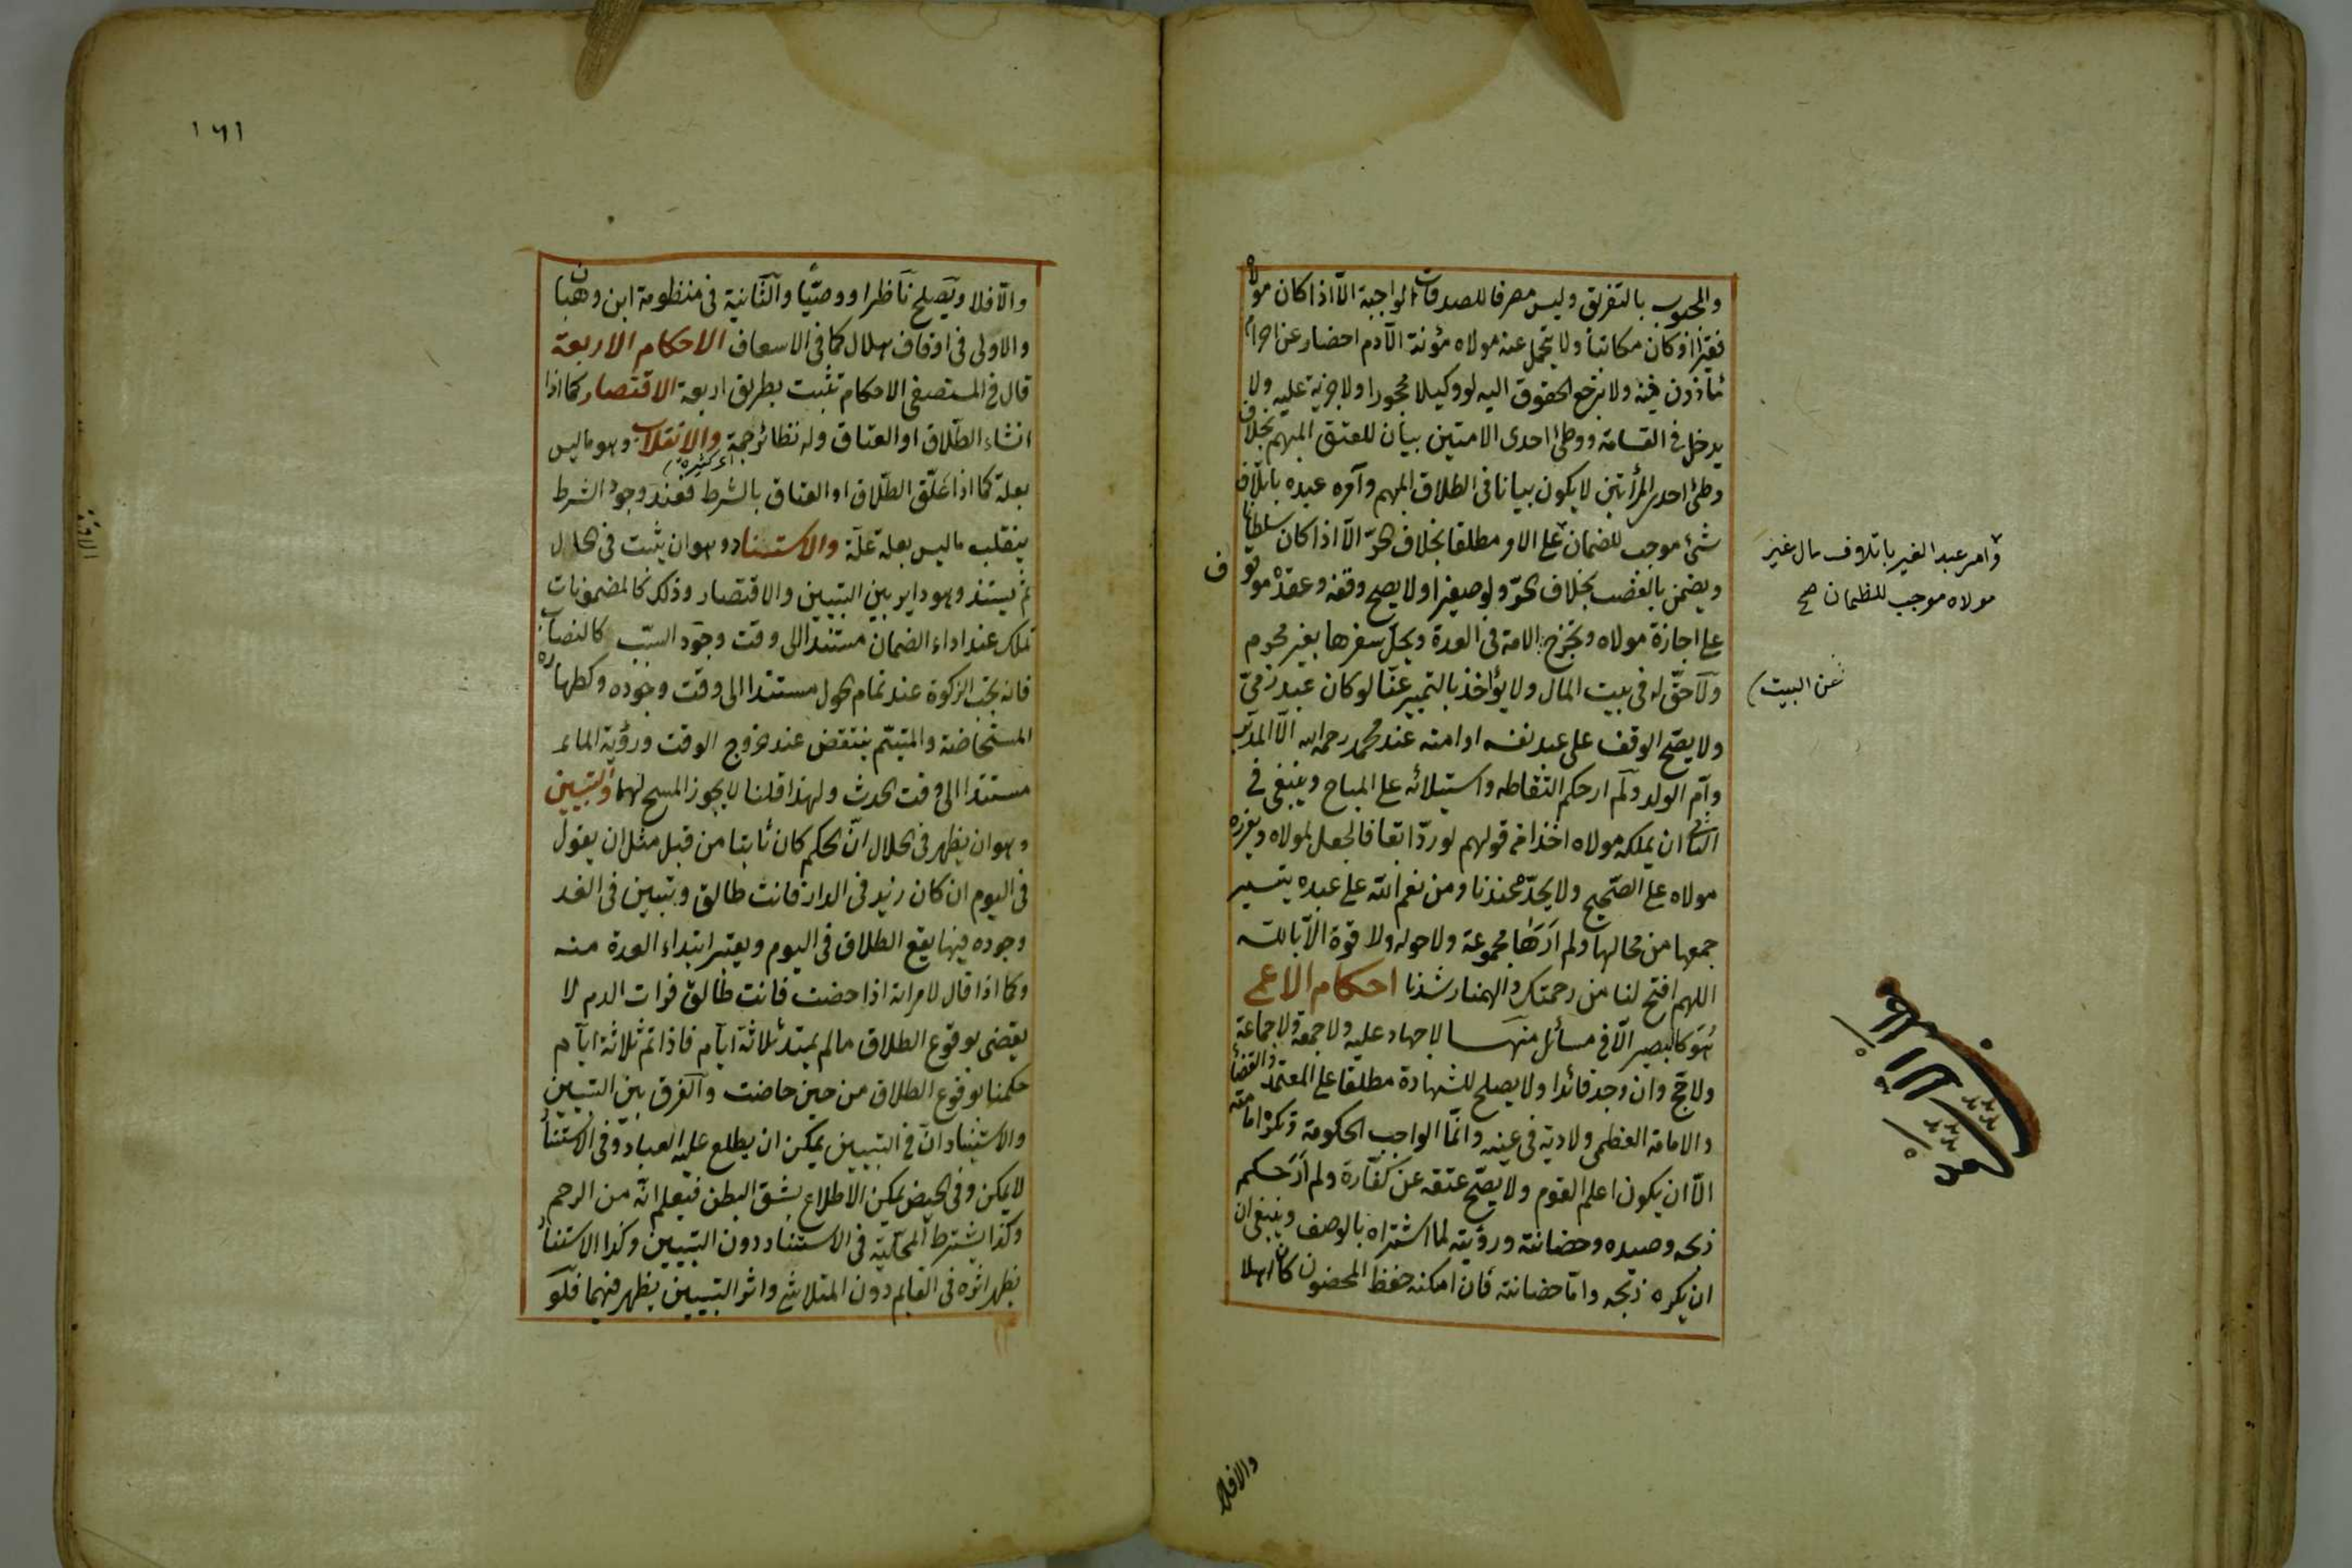 والمحبوب بالتفريق وليس مصرفا للصدقات الواجبة الا اذا كان مولاه
فقيرا او كان مكاتبا ولا يتحمل عنه مولاه مؤنة الا دم احصار عن احرام
مأذون فيه ولا ترجع الحقوق اليه لو وكيلا محجورا ولا جزية عليه ولا
يدخل فى القسامة ووطئ احدى الامتين بيان للعتق المبهم بخلاف
وطئ احدى المرأتين لا يكون بيانا فى الطلاق المبهم وآمره عبده باتلاف
شئ موجب للضمان على الامر مطلقا بخلاف الحرّ الّا اذا كان سلطانا
ويضمن بالغصب بخلاف الحرّ ولو صغيرا ولا يصح وقفه وعقده موقوف
على اجازة مولاه وتخرج الامة فى العدة ويحلّ سفرها بغير محرم
ولا حقّ له فى بيت المال ولا يؤاخذ بالتمييز عنّا لو كان عبد ذمىّ
ولا يصحّ الوقف على عبد نفسه او امته عند محمد رحمه الله الّا المدبّر
وآم الولد ولم ار حكم التقاطه واستيلائه على المباح وينبغى فى
الثانى ان يملكه مولاه اخذا من قولهم لو ردّ ابقا فالجعل لمولاه ويعزره
مولاه على الصّحيح ولا يحدّه عندنا ومن نعم الله على عبده تيسير
جمعها من محالها ولم ارها مجموعة ولا حول ولا قوة الّا بالله
اللهم افتح لنا من رحمتك والهمنا رشدنا احكام الاعمى
هو كالبصير الّا فى مسائل منها لا جهاد عليه ولا جمعة ولا جماعة
ولا حج وان وجد قائدا ولا يصلح للشهادة مطلقا على المعتمد والقضاء
والامامة العظمى ولا دية فى عينه وانّما الواجب الحكومة وتكره امامته
الّا ان يكون اعلم القوم ولا يصحّ عتقه عن كفّارة ولم ار حكم
ذبحه وصيده وحضانته ورؤيته لما اشتراه بالوصف وينبغى ان
ان يكره ذبحه وامّا حضانته فان امكنه حفظ المحضون كان اهلا
وامر عبد الغير باتلاف مال غير
مولاه موجب للظمان صح
عن البيت
والافلا
١٦١
والّا فلا ويصلح ناظرا ووصيّا والثانية فى منظومة ابن وهبان
والاولى فى اوقاف هلال كما فى الاسعاف الاحكام الاربعة
قال فى المستصفى الاحكام تثبت بطريق اربعة الاقتصار كما اذا
انشاء الطّلاق او العتاق وله نظائر جمة والانقلاب وهو ما ليس
اى كثيرة
بعلة كما اذا علّق الطّلاق او العتاق بالشرط فعند وجود الشرط
ينقلب ما ليس بعلة علّة والاستناد وهو ان يثبت فى الحال
ثم يستند وهو داير بين التبيين والاقتصار وذلك كالمضمونات
تملك عند اداء الضمان مستندا الى وقت وجود السّبب كالنصاب
فانه تجب الزكوة عند تمام الحول مستندا الى وقت وجوده وكطهارة
المستحاضة والمتيمّم ينتقض عند خروج الوقت ورؤية الماء
مستندا الى وقت الحدث ولهذا قلنا لا يجوز المسح لهما والتبيين
وهو ان يظهر فى الحال انّ الحكم كان ثابتا من قبل مثل ان يقول
فى اليوم ان كان زيد فى الدار فانت طالق وتبيّن فى الغد
وجوده فيها يقع الطلاق فى اليوم ويعتبر ابتداء العدة منه
وكما اذا قال لامراته اذا حضت فانت طالق فرات الدم لا
يقضى بوقوع الطلاق ما لم يمتد ثلاثة ايآم فاذا تم ثلاثة ايآم
حكمنا بوقوع الطلاق من حين حاضت والفرق بين التبيين
والاستناد انّ فى التبيين يمكن ان يطلع عليه العباد وفى الاستناد
لا يمكن وفى الحيض يمكن الاطلاع بشق البطن فيعلم انّه من الرحم
وكذا يشترط المحلّية فى الاستناد دون التبيين وكذا الاستناد
يظهر اثره فى القايم دون المتلاشى واثر التبيين يظهر فيهما فلو